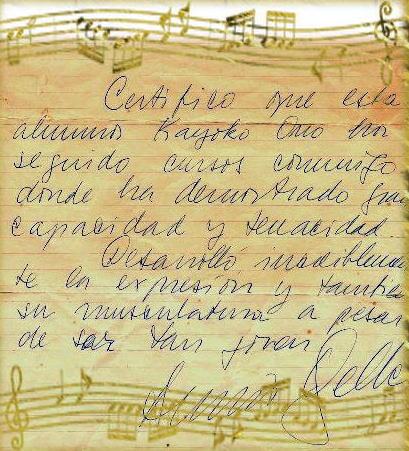 Certifico que esta
alumna Kayoko Ono ha
seguido cursos conmigo
donde ha demostrado gran
capacidad y tenacidad.
Desarrolló increiblemen
te la expresión y también
su musculatura a pesar
de ser tan joven